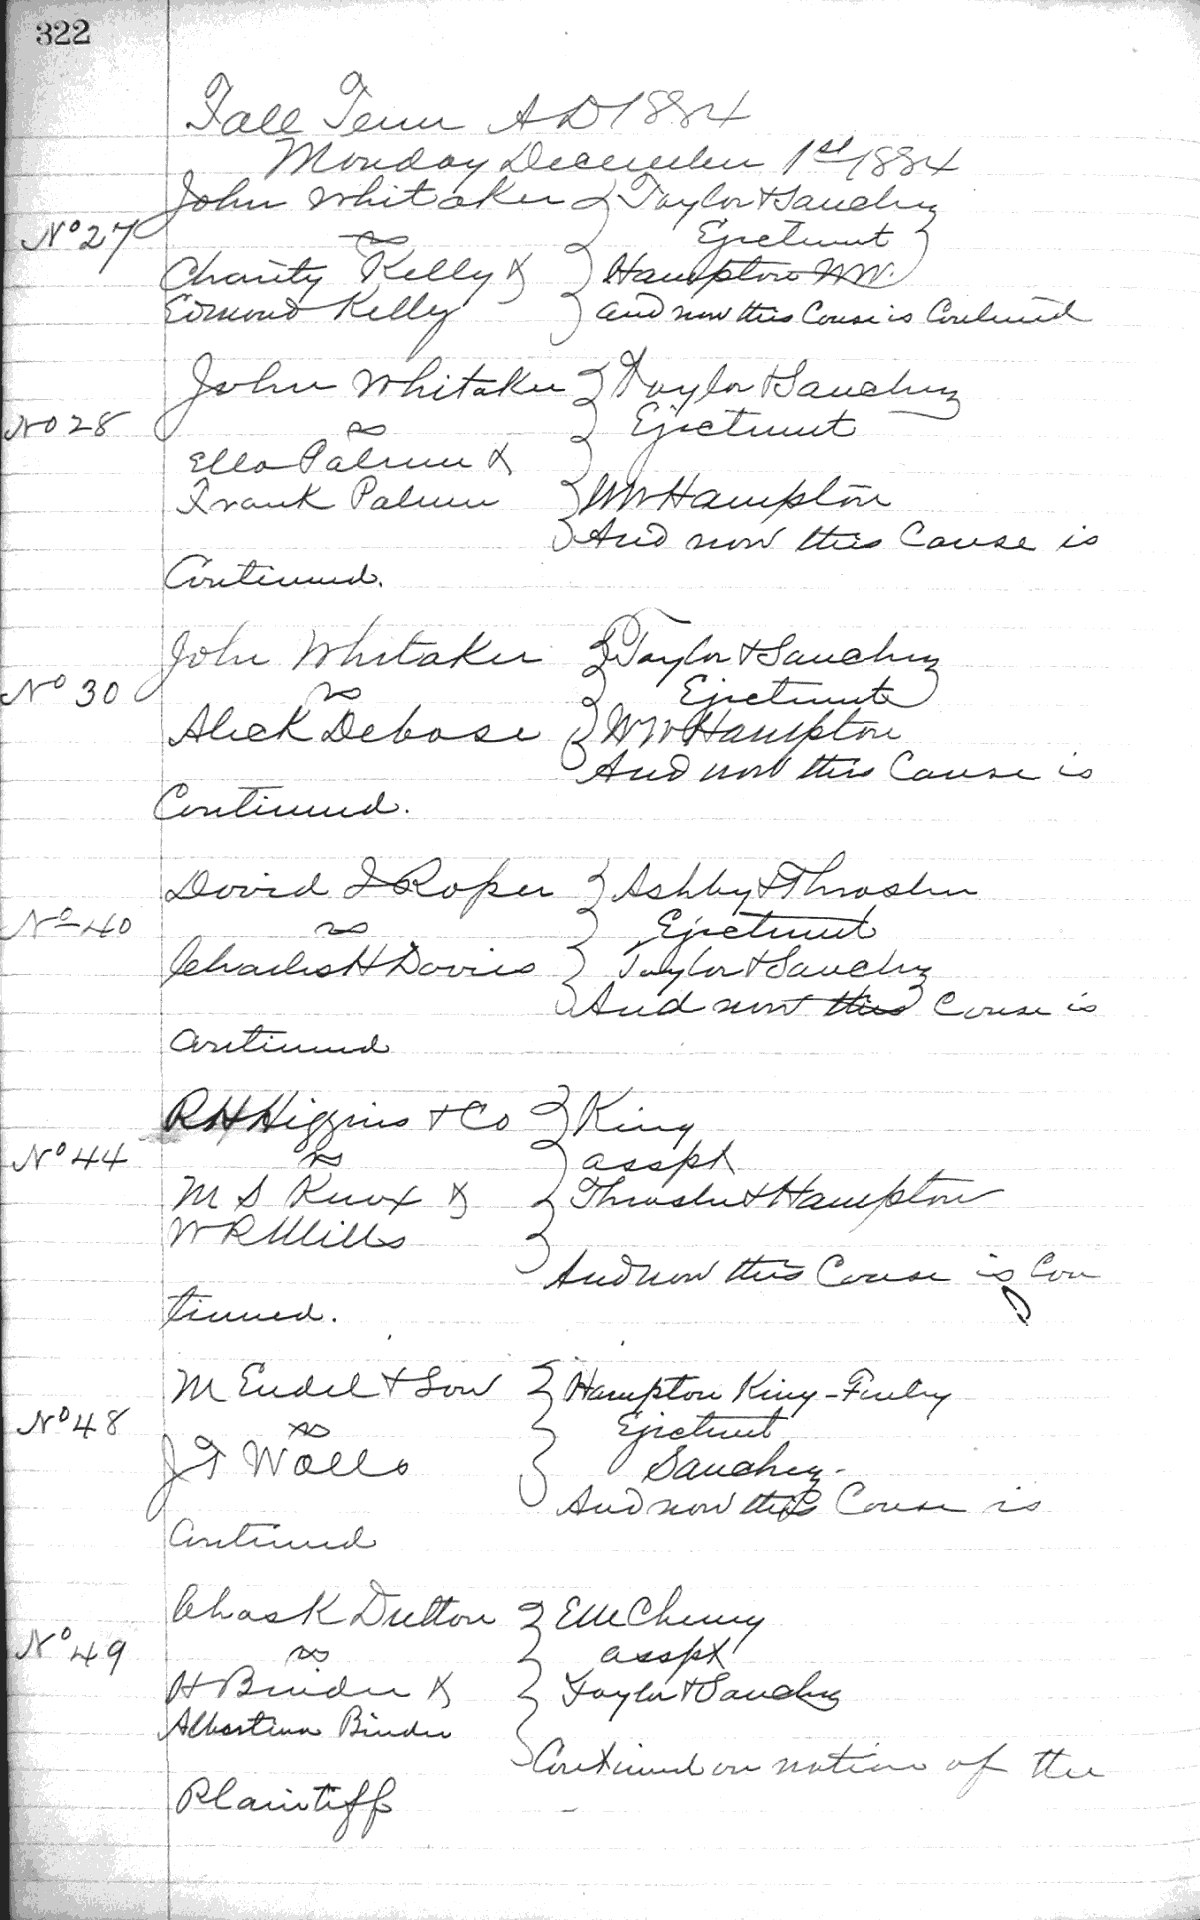 322
Fall Term AD 1884
Monday December 1st 1884
John Whitaker } Taylor & Sanchez
No 27 vs } Ejectment
Charity Kelly & } Hampton WW.
Edmond Kelly } and now this Cause is Continued
John Whitaker } Taylor & Sanchez
No 28 vs } Ejectment
Ella Palmer &
Frank Palmer } WW Hampton
And now this Cause is
Continued.
John Whitaker } Taylor & Sanchez
No 30 vs } Ejectment
Aleck Debose } WW Hampton
And now this Cause is
Continued.
David J Roper } Ashby & Thrasher
No 40 vs } Ejectment
Charles H Davies } Taylor & Sanchez
And now this Cause is
Continued
R H Higgins & Co } King
No 44 vs } asspt
M S Knox & } Thrasher & Hampton
W R Mills
And now this Cause is Con
tinued.
M Endel & Son } Hampton King - Finley
No 48 vs } Ejectment
J T Walls } Sanchez -
And now this Cause is
Continued
Chas K Dutton } EM Cheny
No 49 vs } asspt
H Binder & } Taylor & Sanchez
Albertina Binder
Continued on motion of the
Plaintiff